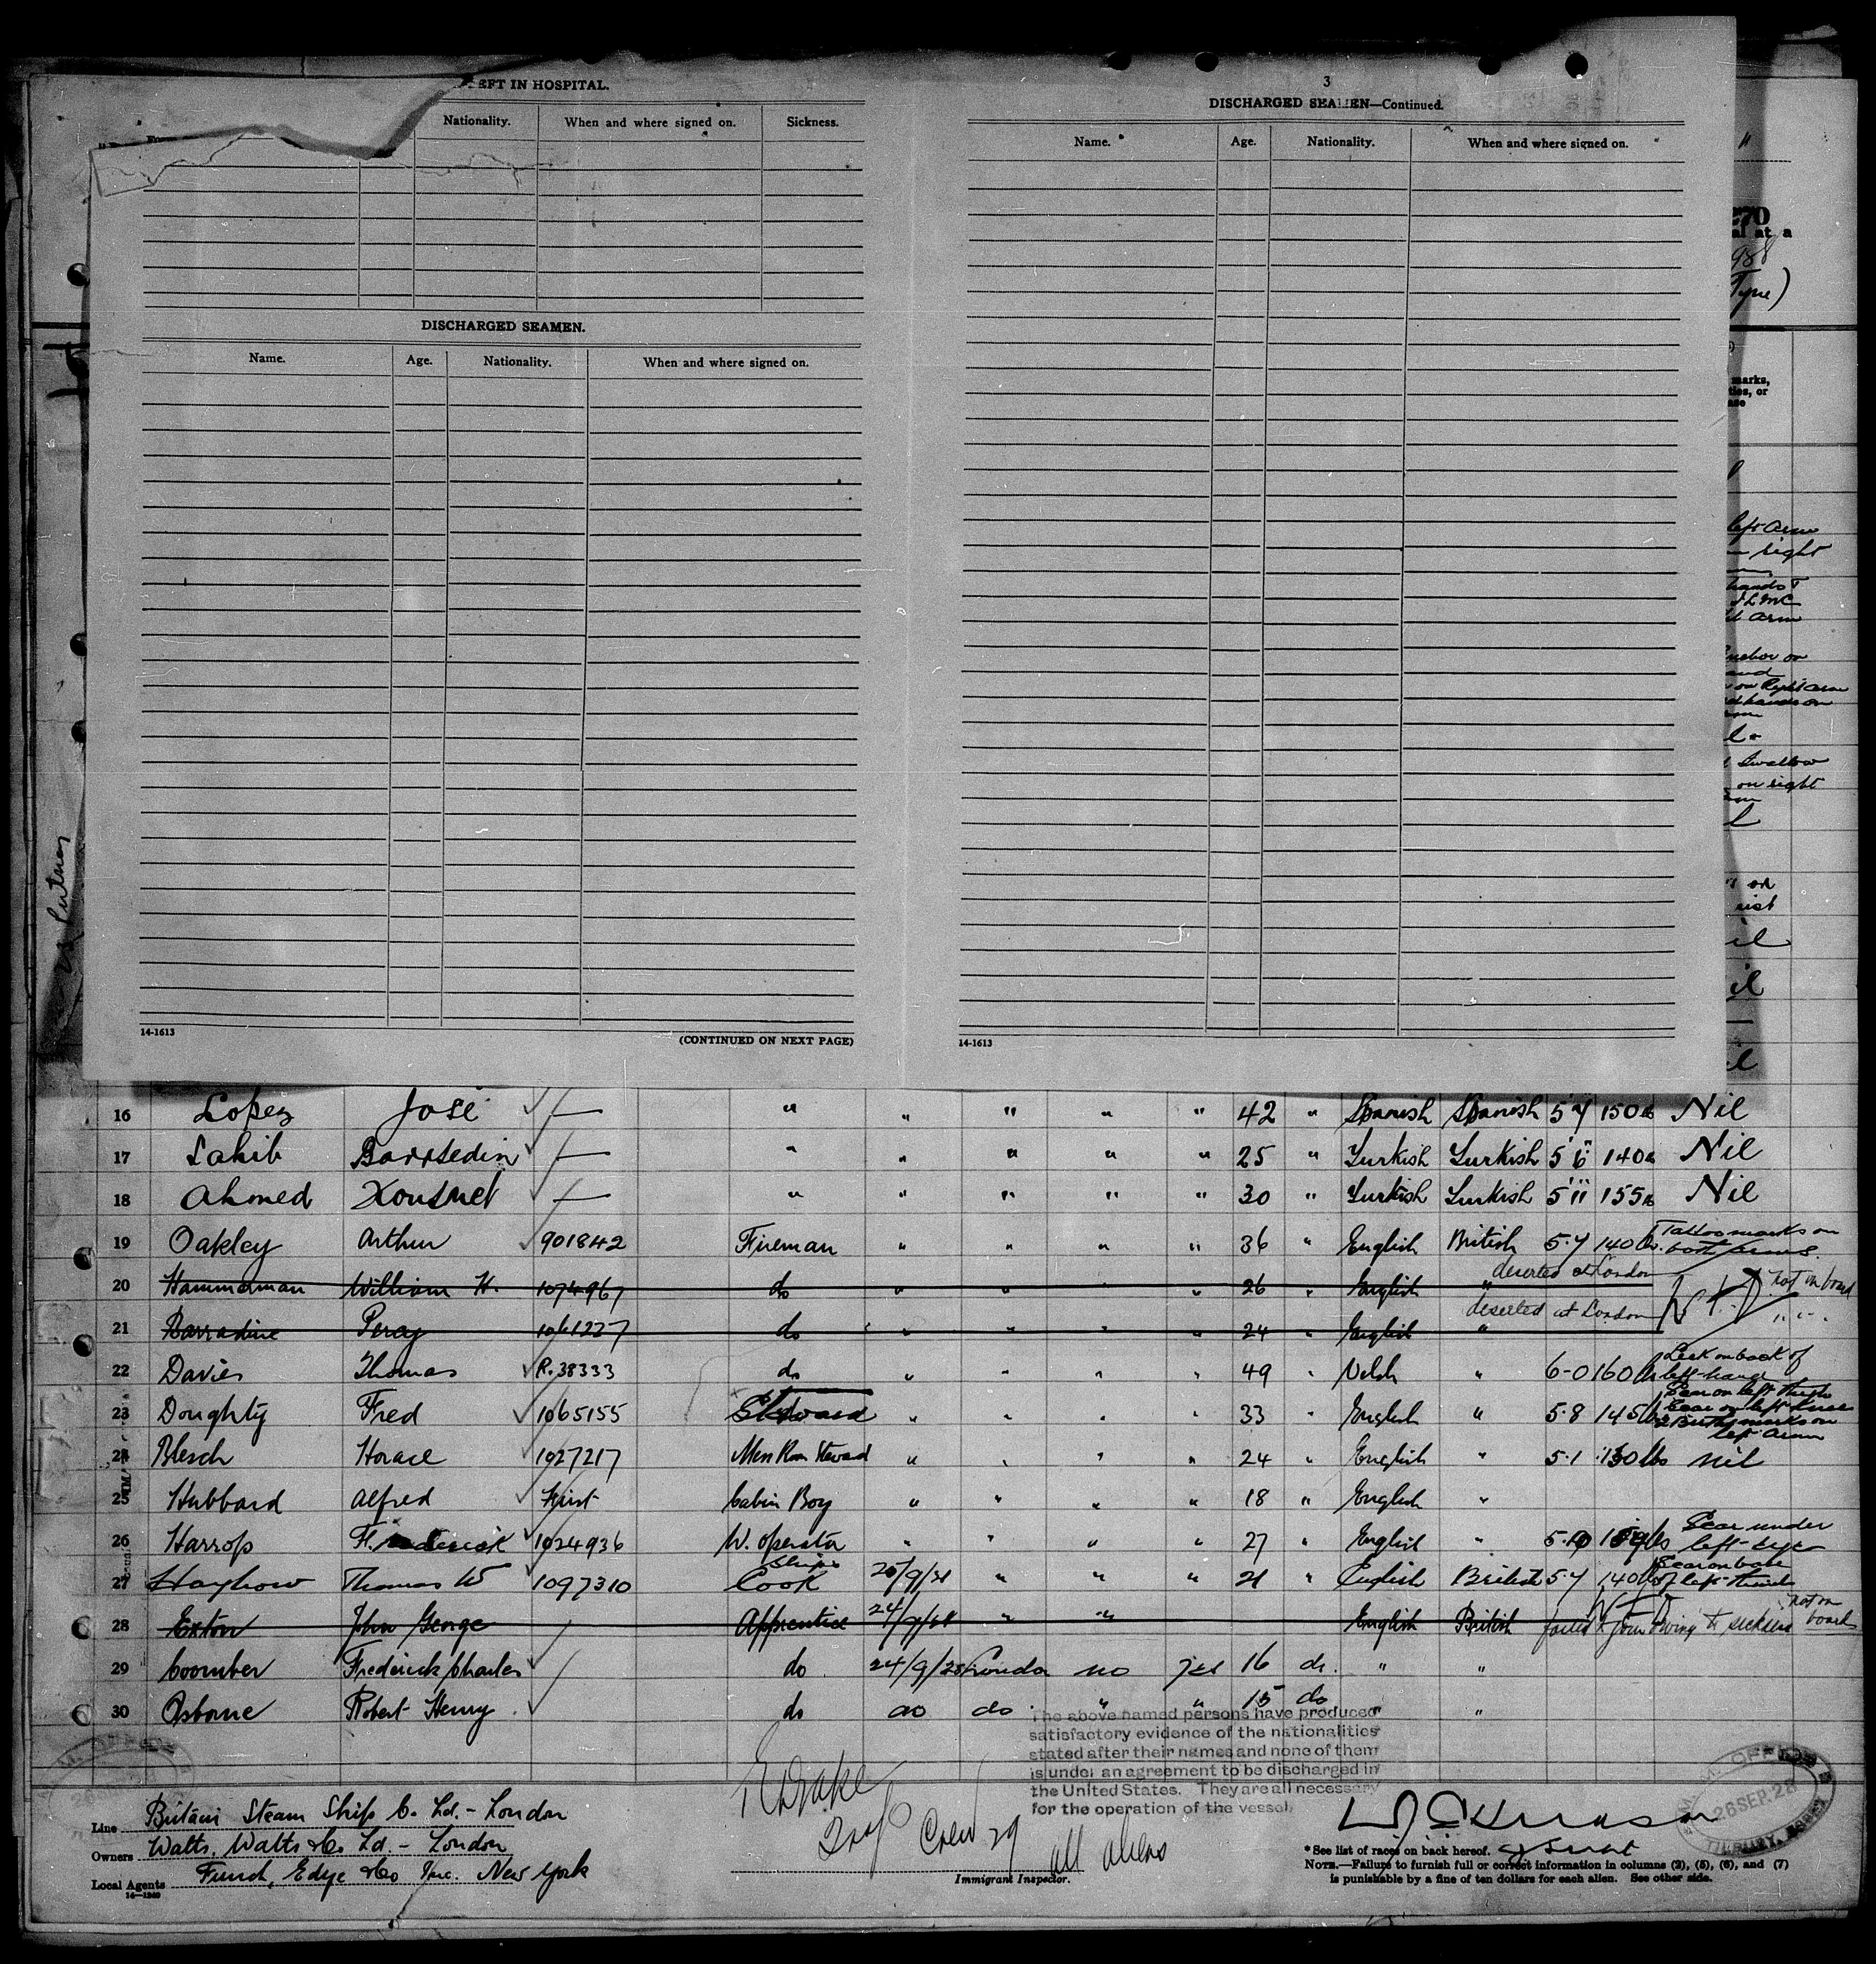 LEFT IN HOSPITAL.
Nationality. When and where signed on. Sickness.
DISCHARGED SEAMEN.
Name. Age. Nationality. When and where signed on.
14-1613 (CONTINUED ON NEXT PAGE)
3
DISCHARGED SEAMEN—Continued.
Name. Age. Nationality. When and where signed on.
14-1613
al at a
Tyne)
marks,
ties, or
left arm
right
hands
arm
anchor on
on Right arm
hands on
Swallow
on right
on
16 Lopez José — " " " " " 42 " Spanish Spanish 5'7 150 lb Nil
17 Sahib — " " " " " 25 " Turkish Turkish 5'6 140 lb Nil
18 Ahmed — " " " " " 30 " Turkish Turkish 5'11 155 lb Nil
19 Oakley Arthur 901842 Fireman " " " " 36 " English British 5.7 140 lbs. Tattoo marks on both arms.
20 Hammerman William H. 1074967 do " " " " 26 " English " deserted at London not on board
21 Barradine Percy 1061227 do " " " " 24 " English " deserted at London " " "
22 Davies Thomas R.38333 do " " " " 49 " Welsh " 6-0 160 lbs on back of left hand
23 Doughty Fred 1065155 Steward " " " " 33 " English " 5.8 145 lbs Scar on left thigh Scar on left knee 2 Birth marks on left arm
24 Blesch Horace 1027217 Mess Rm Steward " " " " 24 " English " 5.1 130 lbs nil
25 Hubbard Alfred First Cabin Boy " " " " 18 " English "
26 Harrop Frederick 1024936 W. operator " " " " 27 " English " 5.10 lbs Scar under left eye
27 Hayhow Thomas W 1097310 Ships Cook " " " 21 " English British 5.7 140 lbs Scar on base of left thumb
28 Exton John George Apprentice " " English British failed to join owing to sickness not on board
29 Coomber Frederick Charles do 24/9/28 London no yes 16 do. " "
30 Osborne Robert Henry. do do do " " 15 do " "
The above named persons have produced
satisfactory evidence of the nationalities
stated after their names and none of them
is under an agreement to be discharged in
the United States. They are all necessary
for the operation of the vessel.
Line Britain Steam Ship Co. Ld. - London
Owners Watts, Watts & Co Ld. - London
Local Agents Funch, Edye & Co Inc. New York
14—1240
Drake
Crew 29 all aliens
Immigrant Inspector.
26 SEP. 28
TILBURY, ESSEX
*See list of races on back hereof.
NOTE.—Failure to furnish full or correct information in columns (2), (5), (6), and (7)
is punishable by a fine of ten dollars for each alien. See other side.